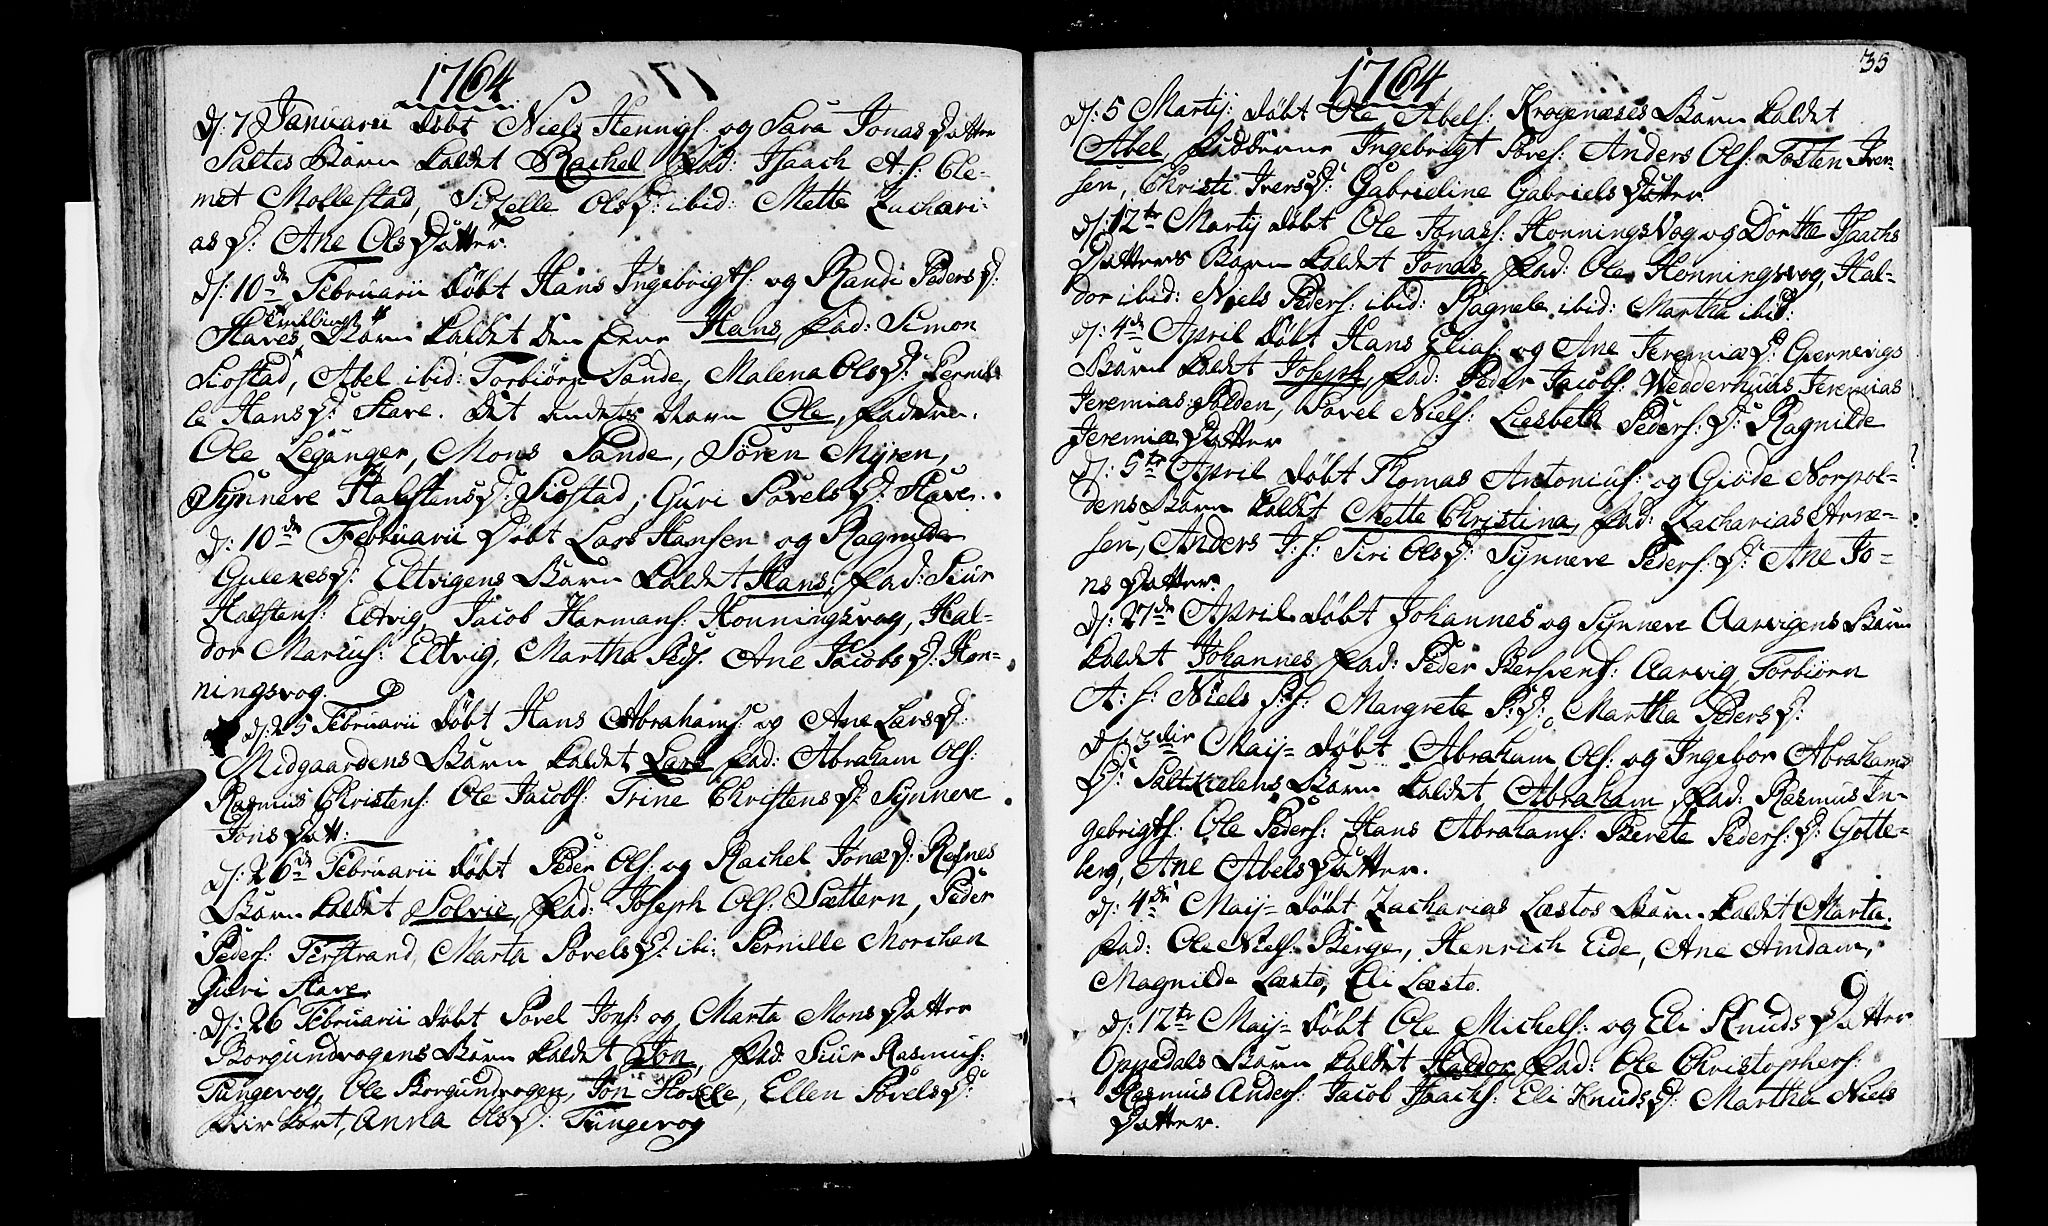 1764
D: 7 Januarii döbt Niels Hennigs: og Sara Jonas Datter
Saltes Barn kaldet Rachel Fad: Isaach A: s: Cle-
met Mollestad, Sizelle Ols D: ibid: Mette Zachari-
as D: Ane Ols Datter.
D: 10de Februarii döbt Hans Ingebrigts: og Randi Peders D:
Tvillinger
Slaves Barn kaldet den Eene Hans, Fad: Simon
Siostad, Abel ibid: Torbiörn Sande, Malena Ols D: Pernil-
le Hans D: Stave. Det andets Navn Ole, Faddere.
Ole Leganger, Mons Sande, Sören Myren,
Synneve Halstens D: Siostad, Guri Povels D: Stave.
D: 10de Februarii Döbt Lars Hansen og Ragnilde
Gulexes D: Eltvigens Barn kaldet Hans, Fad: Siur
Halstens: Eltvig, Jacob Harmans: Honningsvog, Hal-
dor Marius: Eltvig, Martha Peds. Ane Jacobs D: Hon-
ningsvog.
D: 25 Februarii Döbt Hans Abrahams: og Ane Lars D:
Midgaardens Barn kaldet Lars Fad: Abraham Ols:
Rasmus Christens: Ole Jacobs: Trine Christens D: Synneve
Jons Datt:
D: 26de Februarii döbt Peder Ols: og Rachel Jonæ D: Refnes
Barn kaldet Solvie, Fad: Joseph Ols: Sættern, Peder
Peders: Ferstrand, Marta Povels D: ibi: Pernille Morichen
Guri Stave.
D: 26 Februarii döbt Povel Jons: og Marta Mons Datter
Borgundvogens Barn kaldet Jon, Fad: Siur Rasmus:
Tungevog, Ole Borgundvogen, Jon Hoxle, Ellen Povels D:
Anna Ols D: Tungevog
35
1764
D: 5 Martij: döbt Ole Abels: Krogenæses Barn kaldet
Abel, Fadderne Ingebrigt Povels: Anders Ols: Tosten Iver-
sen, Christi Ivers D: Gabrieline Gabriels Datter.
D: 12te Martij döbt Ole Jonas: HonningsVog og Dorthe Isachs
Datters Barn kaldet Jonas, Fad: Ole Honningsvog, Hal-
dor ibid: Niels Peders: ibid: Ragnele ibid: Martha ibid:
D: 4de April döbt Hans Elias: og Ane Jeremiæ D: Giernevigs
Barn kaldet Joseph, Fad: Peder Jacobs: Wedderhuus Jeremias
Jeremias: Polden, Povel Niels: Liesbeth Peders: D: Ragnilde
Jeremiæ Datter
D: 5te April döbt Thomas Antonius: og Giöde Norpol-
dens Barn kaldet Mette Christina, Fad: Zacharias Arne-
sen, Anders J: s: Siri Ols D: Synneve Peders: D: Ane Jo-
ns Datter.
D: 27de April döbt Johannes og Synneve Aarvigens Barn
kaldet Johannes Fad: Peder Bersvens: Aarvig, Torbiörn
A: s: Niels P: s: Margrete P: D: Martha Peders D:
D: 3die Maij= döbt Abraham Ols: og Ingebor Abrahams
D: Saltkielens Barn kaldet Abraham, Fad: Rasmus In-
gebrigts: Ole Peders: Hans Abrahams: Berete Peders: D: Gotte-
berg, Ane Abels Datter.
D: 4de Maij= döbt Zacharias Læstos Barn kaldet Marta.
Fad: Ole Niels: Berge, Henrich Eide, Ane Amdam,
Magnilde Læsto, Eli Læsto.
D: 12te Maij= döbt Ole Michels: og Eli Knuds Datter
Oppedals Barn kaldet Haldor Fad: Ole Christophers:
Rasmus Anders: Jacob Isachs: Eli Knuds D: Martha Niels
Datter.